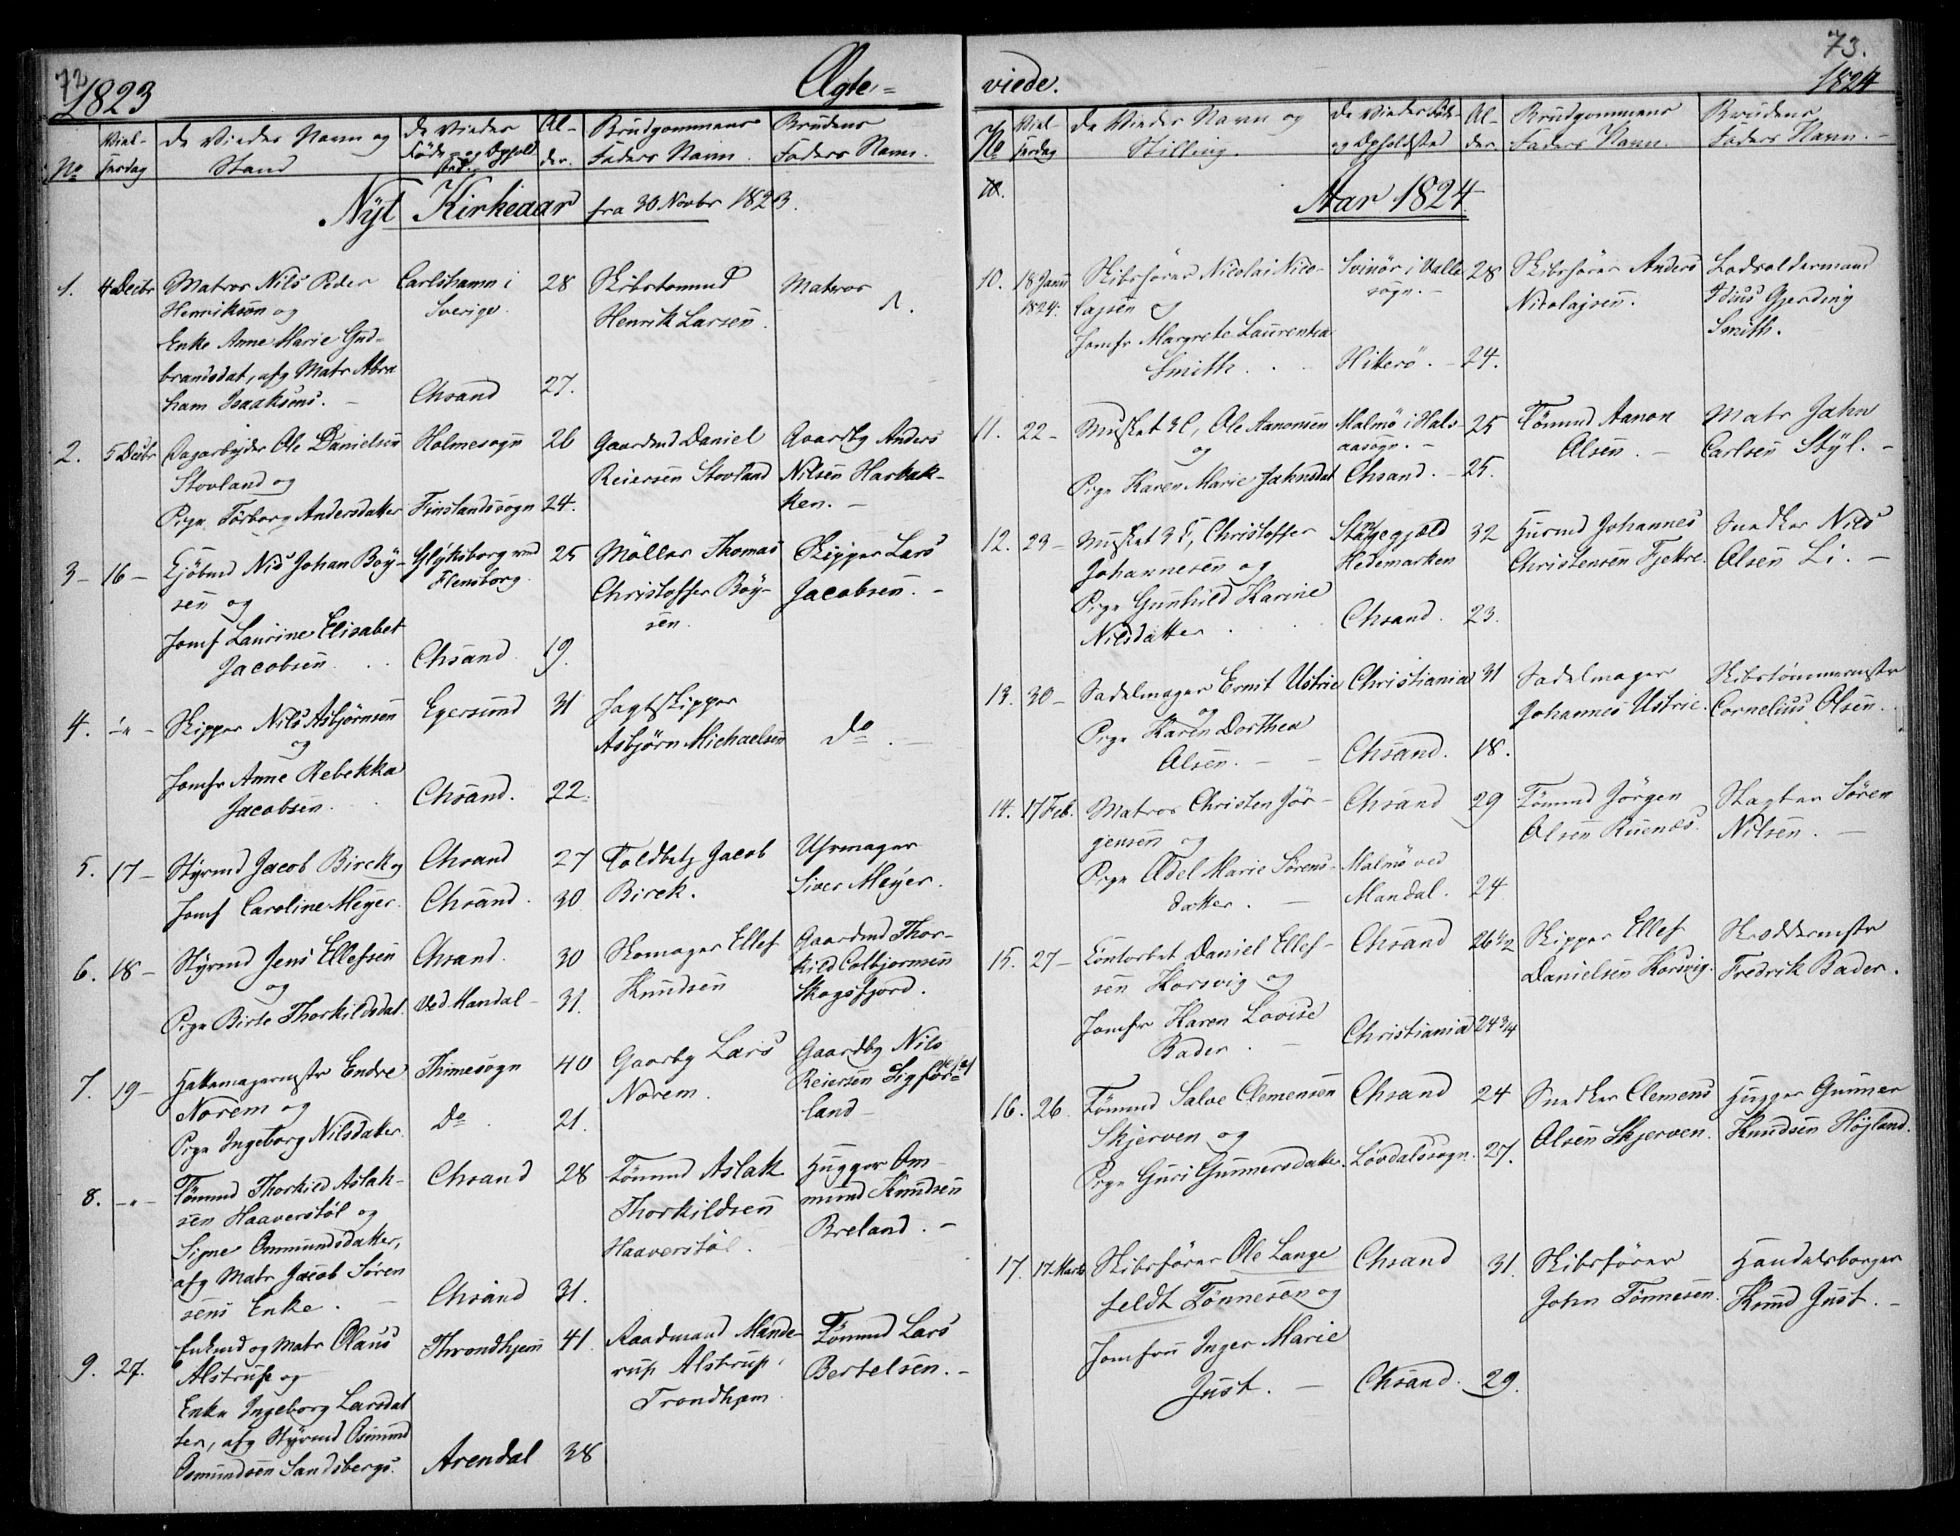 72
1823
Ægte-
No
Viel-
sesdag
De Viedes Navn og
Stand
De Viedes
Føde- og Ophold
sted
Al-
der.
Brudgommens
Faders Navn.
Brudens
Faders Navn.
Nyt Kirkeaar fra 30 Novbr 1823.
1.
4 Decbr
Matros Nils Peder
Henriksen og
Enke Anne Marie Gud-
brandsdat, afg Matr Abra
ham Isaaksens. -
Carlshamn i
Sverige.
Chsand
28
27.
Skibstømmd
Henrik Larsen.
Matros
2.
5 Decbr
Dagarbejder Ole Danielsen
Stovland og
Pige Torborg Andersdatter
Holmesogn
Finslandssogn
26
24.
Gaardmd Daniel
Reiersen Stovland
Gaardby Anders
Nilsen Harbak-
ken. -
3 -
16 -
Kjøbmd Nis Johan Boy-
sen og
Jomf Laurine Elisabet
Jacobsen.
Glyksborg ved
Flensborg.
Chsand
25
19.
Møller Thomas
Christoffer Boy-
sen.
Skipper Lars
Jacobsen. -
4.
-"-
Skipper Nils Asbjørnsen
og
Jomfr Anne Rebekka
Jacobsen.
Egersund
Chsand.
31
22.
Jagtskipper
Asbjørn Michaelsen
Do. -
5.
17 -
Styrmd Jacob Birck og
Jomf Caroline Meyer.
Chsand
Chsand.
27
30
Toldbetj Jacob
Birck.
Uhrmager
Siver Meyer.
6.
18 -
Styrmd Jens Ellefsen
og
Pige Birte Thorkildsdat.
Chsand.
Ved Mandal -
30
31.
Skomager Ellef
Knudsen
Gaardmd Thor-
kild Colbjørnsen
Skogsfjord.
7.
19 -
Hattemagermstr Endre
Norem og
Pige Ingeborg Nilsdatter.
Thimesogn
Do
40
21.
Gaardby Lars
Norem.
Gaardby Nils
Reiersen
land -
8.
-"-
Tømmd Thorkild Aslak-
sen Haaverstøl og
Signe Ommundsdatter,
afg Matr Jacob Søren
sens Enke. -
Chsand
Chsand
28
31.
Tømmd Aslak
Thorkildsen
Haaverstøl.
Hugger Om-
mund Knudsen
Breland. -
9.
27.
Enkmd og Matr Olaus
Alstrup og
Enke Ingeborg Larsdat
ter, afg Styrmd Osmund
Osmundsen Sandsbergs.
Throndhjem
Arendal
41.
38
Raadmand Mande-
rup Alstrup,
Trondhjem
Tømmd Lars
Bertelsen. -
73.
1824
viede.
No
Viel-
sesdag
De Viedes Navn og
Stilling.
De Viedes Føde-
og Opholdsted
Al-
der
Brudgommens
Faders Navn.
Brudens
Faders Navn. -
10.
Aar 1824
10.
18 Janu
1824.
Skibsfører Nicolai Nico-
lajsen og
Jomfr Margrete Laurentia
Smith.
Svinør i Valle
sogn. -
Hiterø. -
28
24.
Skibsfører Anders
Nikolajsen.
Lodsoldermand
Idius Gjerding
Smith.
11.
22 -
Musket 3 C, Ole Aanonsen
og
Pige Karen Marie Jahnsdat
Malmø i Hals
aasogn. -
Chsand. -
25
25.
Tømmd Aanon
Olsen. -
Matr Jahn
Carlsen Styl. -
12.
23 -
Musket 3 C, Christoffer
Johannesen og
Pige Gunhild Karine
Nilsdatter
Stangegjeld
Hedemarken
Chsand.
32
23.
Husmd Johannes
Christensen Fjekre.
Snedker Nils
Olsen Li. -
13.
30 -
Sadelmager Ernst Ustrie
og
Pige Karen Dorthea
Olsen. -
Christiania
Chsand.
31
18.
Sadelmager
Johannes Ustrie.
Skibstømmermstr
Cornelius Olsen.
14.
17 Feb.
Matros Christen Jør-
gensen og
Pige Edel Marie Sørens-
datter. -
Chsand
Malmø ved
Mandal.
29
24
Tømmd Jørgen
Olsen Ruenæs.
Slagter Søren
Nilsen. -
15.
27 -
Contorbet Daniel Ellef-
sen Korsvig og
Jomfr Karen Lovise
Bader. -
Chsand
Christiania
26 1/2
24 3/4
Skipper Ellef
Danielsen Korsvig.
Skreddermstr
Fredrik Bader.
16.
26.
Tømmd Salve Clemensen
Skjerven og
Pige Guri Gunnersdatter.
Chsand
Løvdalssogn.
24
27.
Snedker Clemens
Olsen Skjerven.
Hugger Gunner
Knudsen Højland.
17.
17 Marts
Skibsfører Ole Lange
feldt Tønnesen og
Jomfru Inger Marie
Just. -
Chsand
Chsand.
31.
29.
Skibsfører
John Tønnesen.
Handelsborger
Knud Just. -